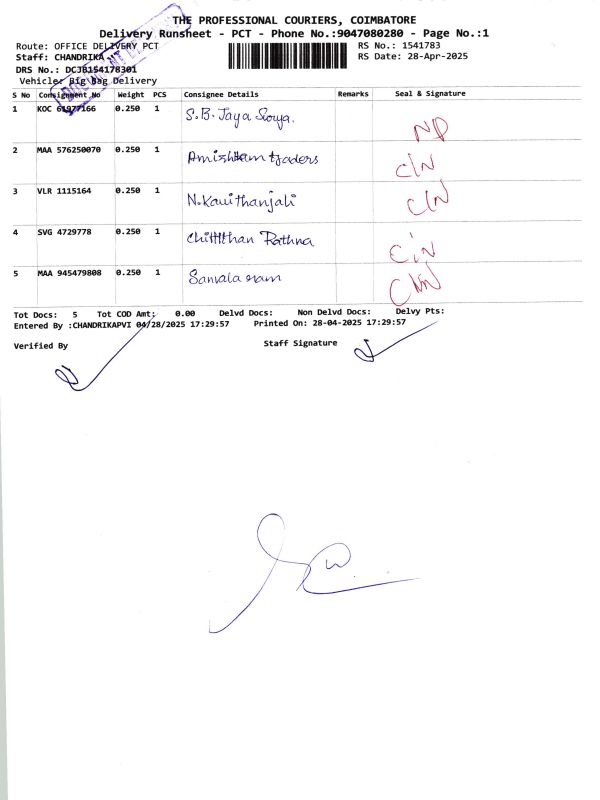 THE PROFESSIONAL COURIERS, COIMBATORE
Delivery Runsheet - PCT - Phone No.:9047080280 - Page No.:1
Route: OFFICE DELIVERY PCT
RS No.: 1541783
Staff: CHANDRIKA
RS Date: 28-Apr-2025
DRS No.: DCJB154178301
Vehicle: Big Bag Delivery
S No Consignment No Weight PCS Consignee Details Remarks Seal & Signature
1 KOC 61977166 0.250 1 S.B. Jaya Surya.
ND
2 MAA 576250070 0.250 1 Amishtam traders
C/N
3 VLR 1115164 0.250 1 N.Kavithanjali
C/N
4 SVG 4729778 0.250 1 Rathna
C/N
5 MAA 945479808 0.250 1
Tot Docs: 5 Tot COD Amt: 0.00 Delvd Docs: Non Delvd Docs: Delvy Pts:
Entered By :CHANDRIKAPVI 04/28/2025 17:29:57 Printed On: 28-04-2025 17:29:57
Verified By Staff Signature